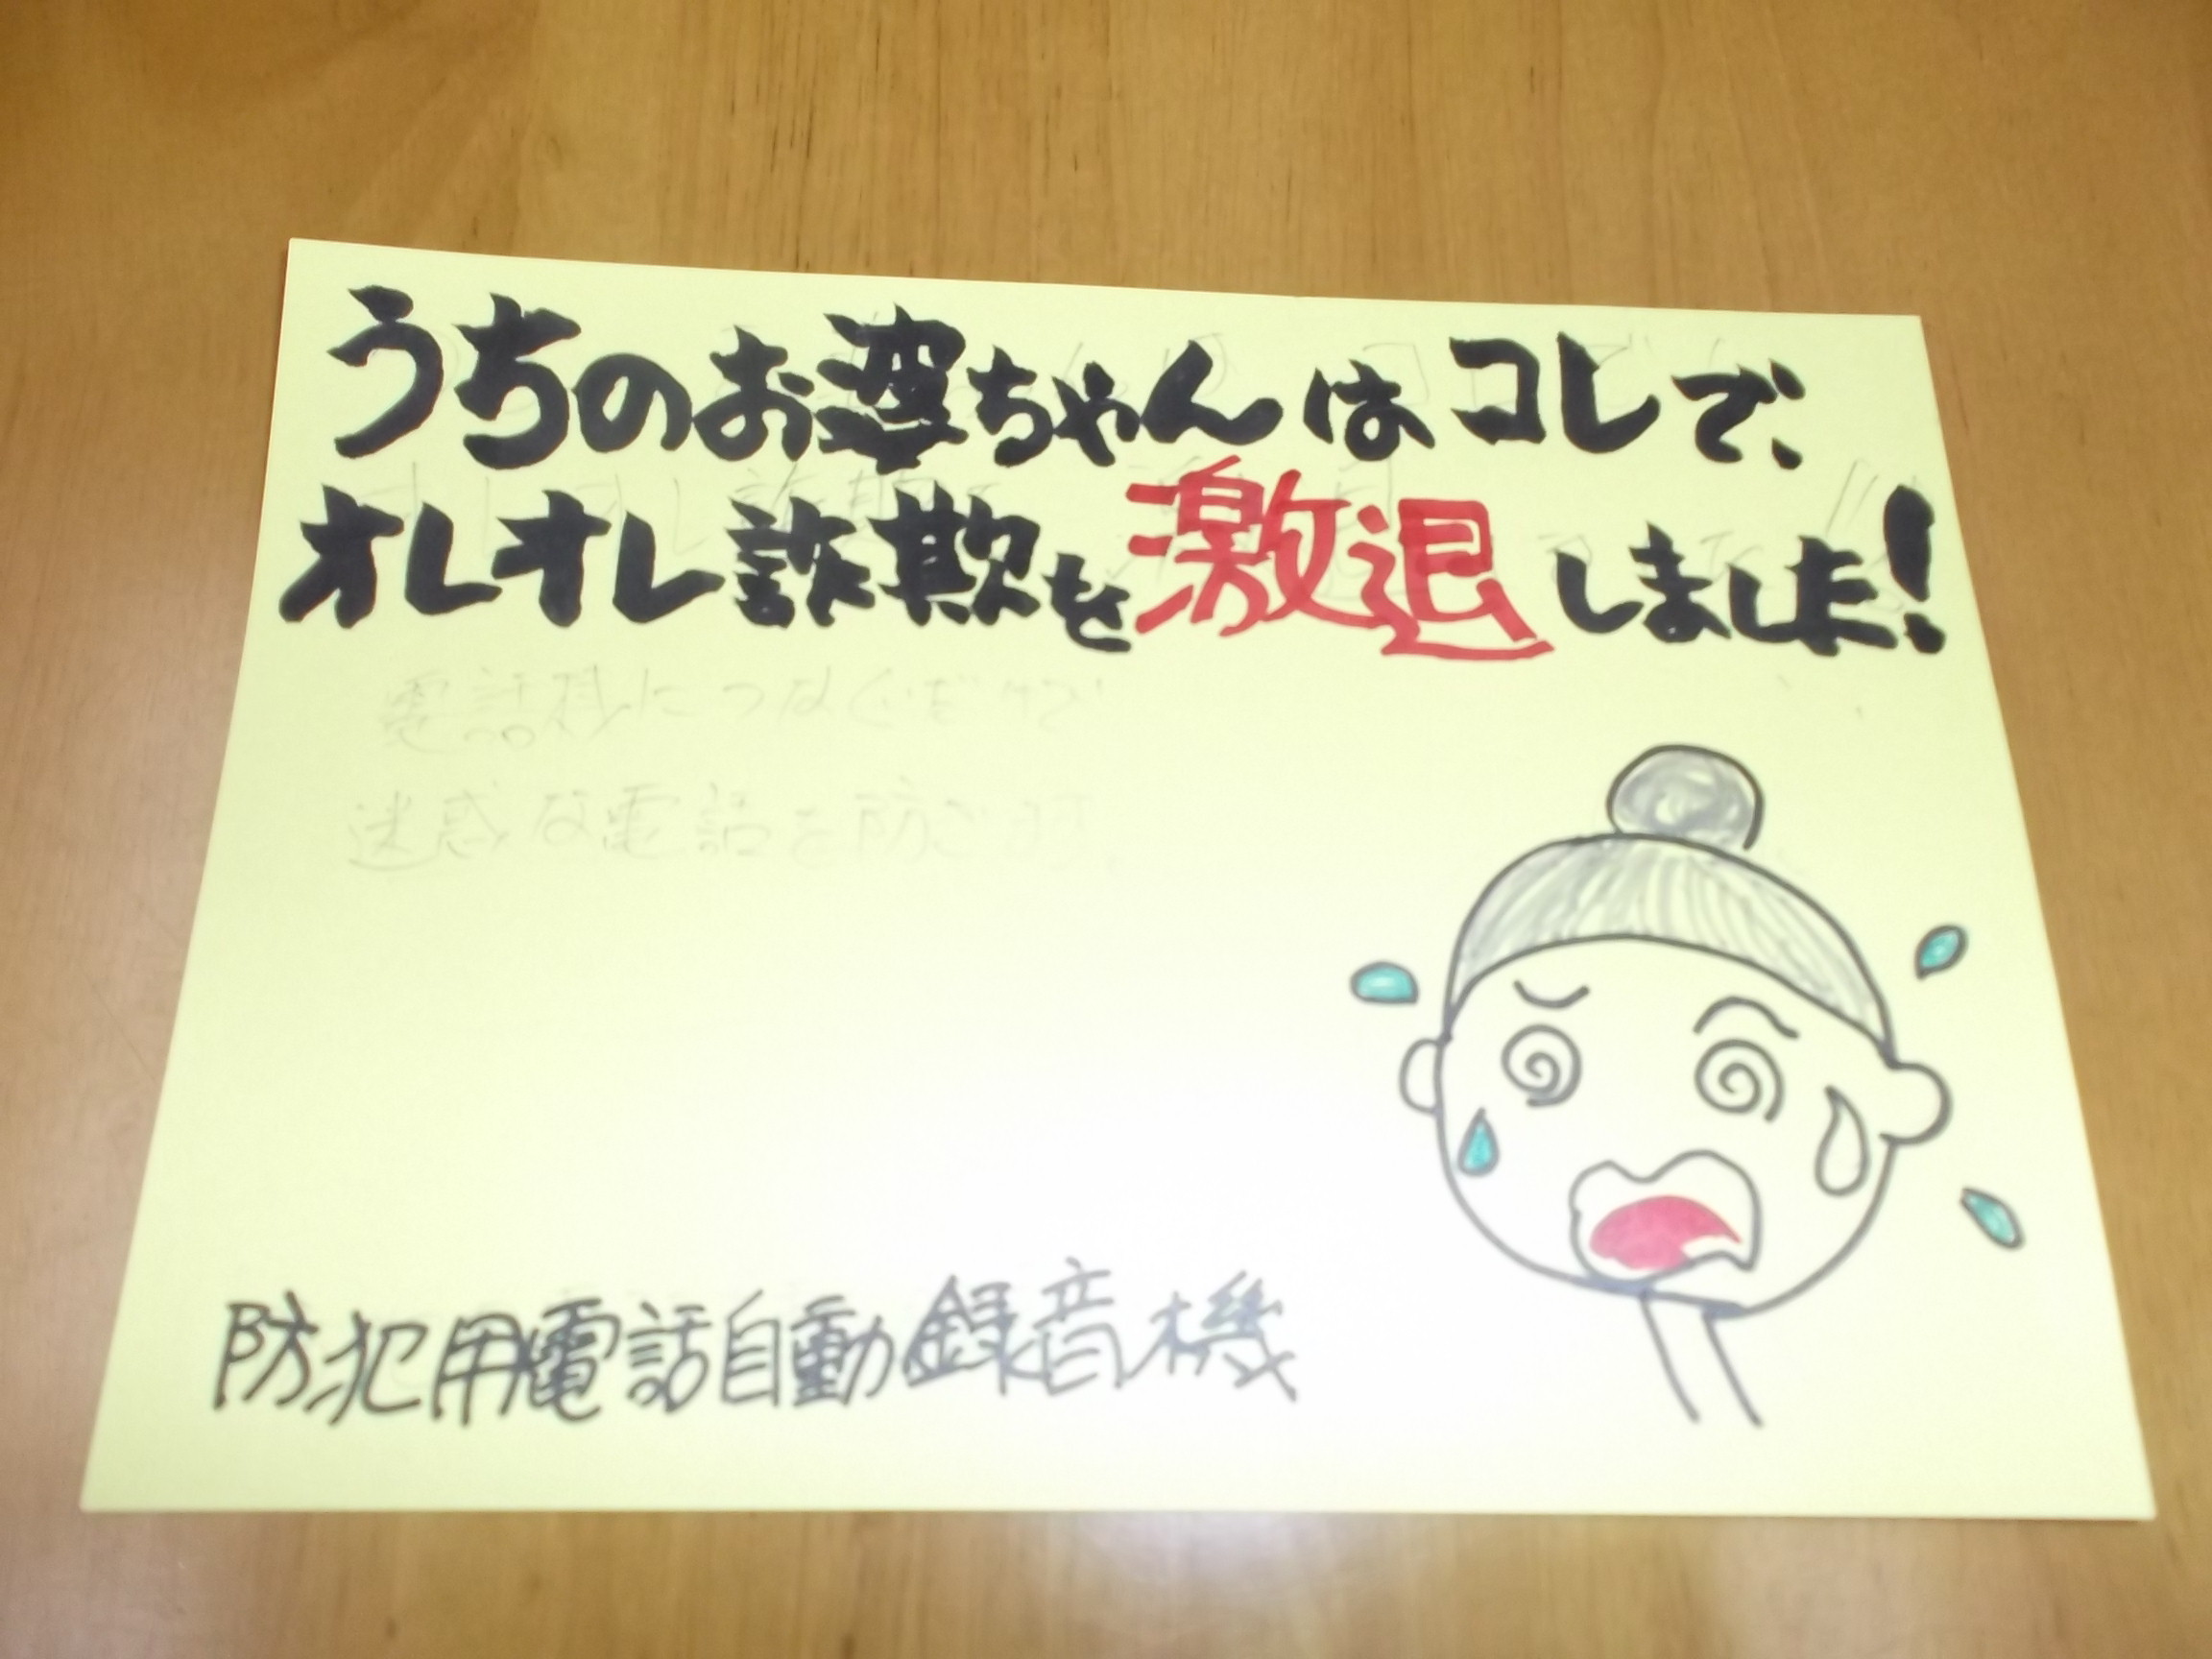 うちのお婆ちゃんはコレで、
オレオレ詐欺を激退しました!
電話機につなぐだけで
迷惑な電話を防ぎます。
防犯用電話自動録音機